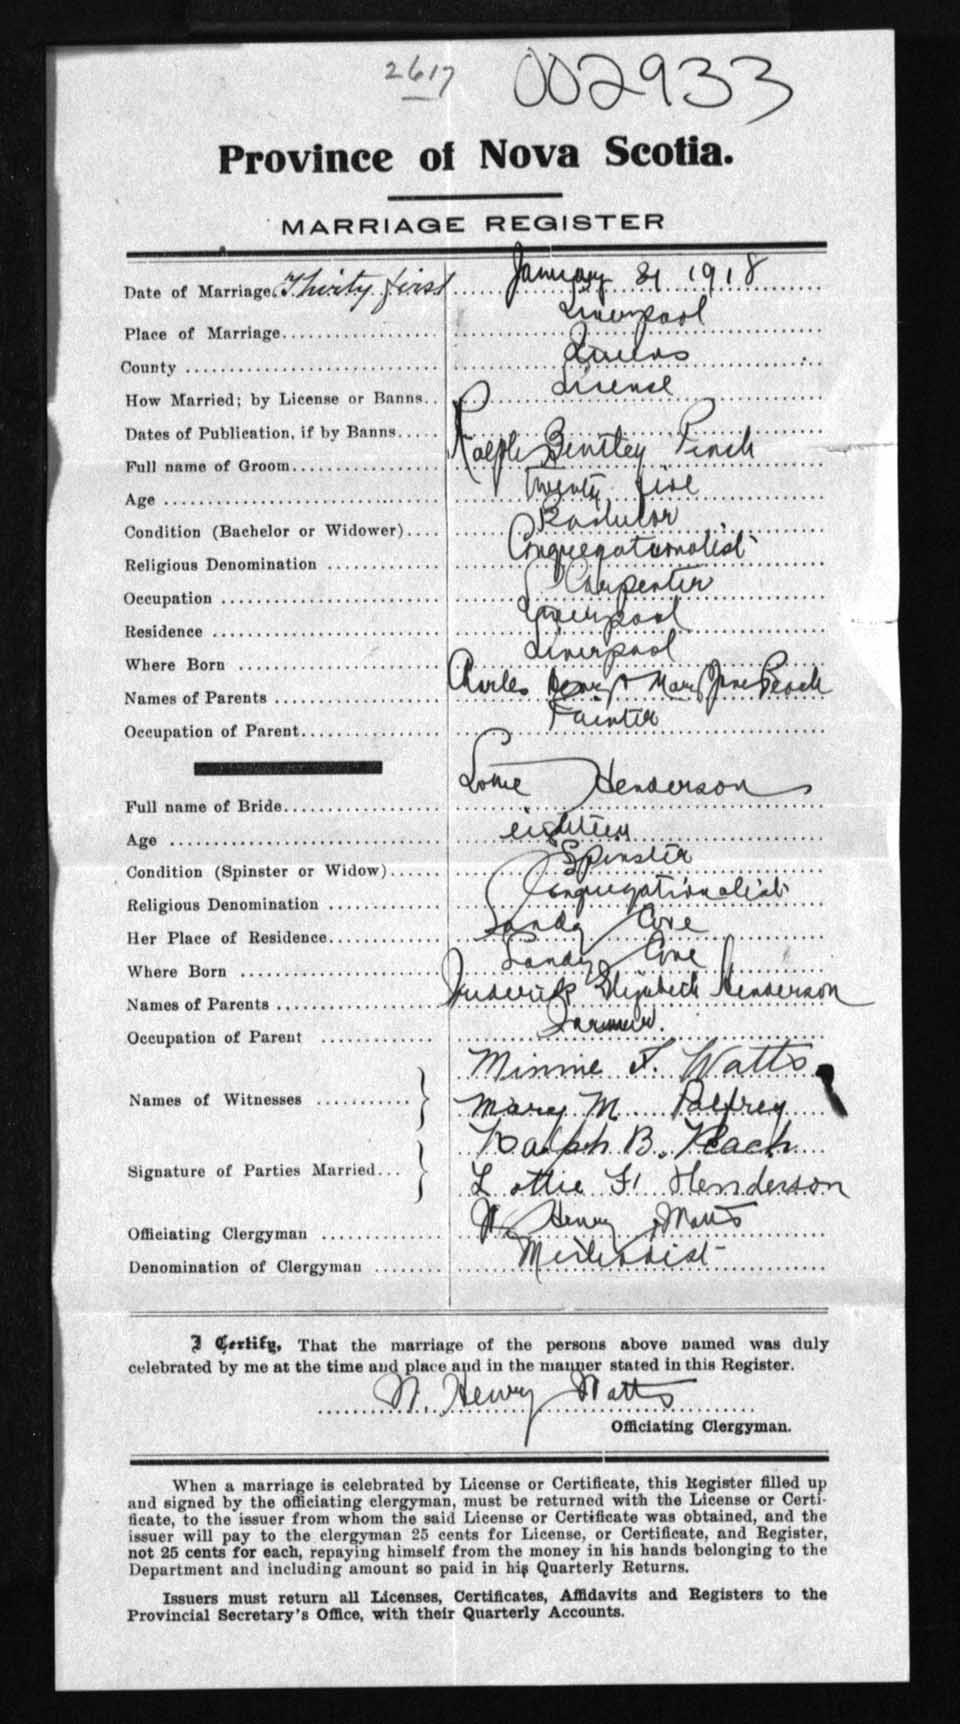 2617 002933
Province of Nova Scotia.
MARRIAGE REGISTER
Date of Marriage. Thirty first January 31 1918
Place of Marriage Liverpool
County Queens
How Married; by License or Banns License
Dates of Publication, if by Banns
Full name of Groom Ralph Bentley Peach
Age Twenty five
Condition (Bachelor or Widower) Bachelor
Religious Denomination Congregationalist
Occupation Carpenter
Residence Liverpool
Where Born Liverpool
Names of Parents Charles Mary Jane Peach
Occupation of Parent
Full name of Bride Lottie Henderson
Age eighteen
Condition (Spinster or Widow) Spinster
Religious Denomination Congregationalist
Her Place of Residence Sandy Cove
Where Born Sandy Cove
Names of Parents Frederick Elizabeth Henderson
Occupation of Parent Farmer.
Names of Witnesses Minnie F. Watts
Mary M. Palfrey
Signature of Parties Married Ralph B. Peach
Lottie F. Henderson
Officiating Clergyman W. Henry Watts
Denomination of Clergyman Methodist
I Certify, That the marriage of the persons above named was duly
celebrated by me at the time and place and in the manner stated in this Register.
W. Henry Watts
Officiating Clergyman.
When a marriage is celebrated by License or Certificate, this Register filled up
and signed by the officiating clergyman, must be returned with the License or Certi-
ficate, to the issuer from whom the said License or Certificate was obtained, and the
issuer will pay to the clergyman 25 cents for License, or Certificate, and Register,
not 25 cents for each, repaying himself from the money in his hands belonging to the
Department and including amount so paid in his Quarterly Returns.
Issuers must return all Licenses, Certificates, Affidavits and Registers to the
Provincial Secretary's Office, with their Quarterly Accounts.